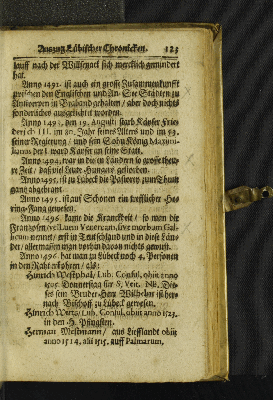 Auszug Lübischer Chronicken. 123
lauff nach der Wilsenact sich mercklich gemindert
hat.
Anno 1491. ist auch ein grosse Zusammenkunfft
zwischen den Englischen und An-See Städten zu
Antwerpen in Braband gehalten / aber doch nichts
sonderliches außgerichtet worden.
Anno 1493. den 19. Augusti starb Käyser Friederich
III. im 80. Jahr seines Alters und im 53.
seiner Regierung / und sein Sohn König Maximilianus
der I. ward Kayser an seine Statt.
Anno 1494. war in die en Ländern so grosse theure
Zeit / daß viel Leute Hungers gestorben.
Anno 1495. ist zu Lübeck die Pastorey zum Thum
gantz abgebrant.
Anno 1495. ist auff Schonen ein trefflicher Hering-Fang
gewesen.
Anno 1496. kame die Kranckheit / so man die
Frantzosen vel Luem Veneream, sive morbum Gallicum
nennet / erst in Teutschland und in diese Länder
/ also man von vorhin davon nichts gewust.
Anno 1496. hat man zu Lübeck noch 4. Personen
in den Raht erkohren / als:
Hinrich Westphal / Lub. Consul, obiit anno
1505. Donnerstag für S. Veit. NB. Dieses
sein Bruder Herr Wilhelm ist hernach
Bischoff zu Lübeck gewesen.
Hinrich Witte / Lub. Consul, obiit anno 1523.
in den H. Pfingsten.
Herman Meßmann / aus Lieffland obiit
anno 1514. alii 1515. auff Palmarum,